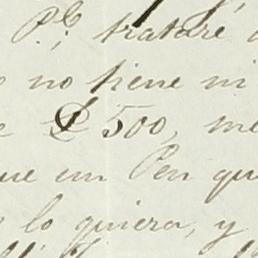 P.e; trataré
no tiene ni
£ 500, me
ue un Pen qu
lo quiera, y